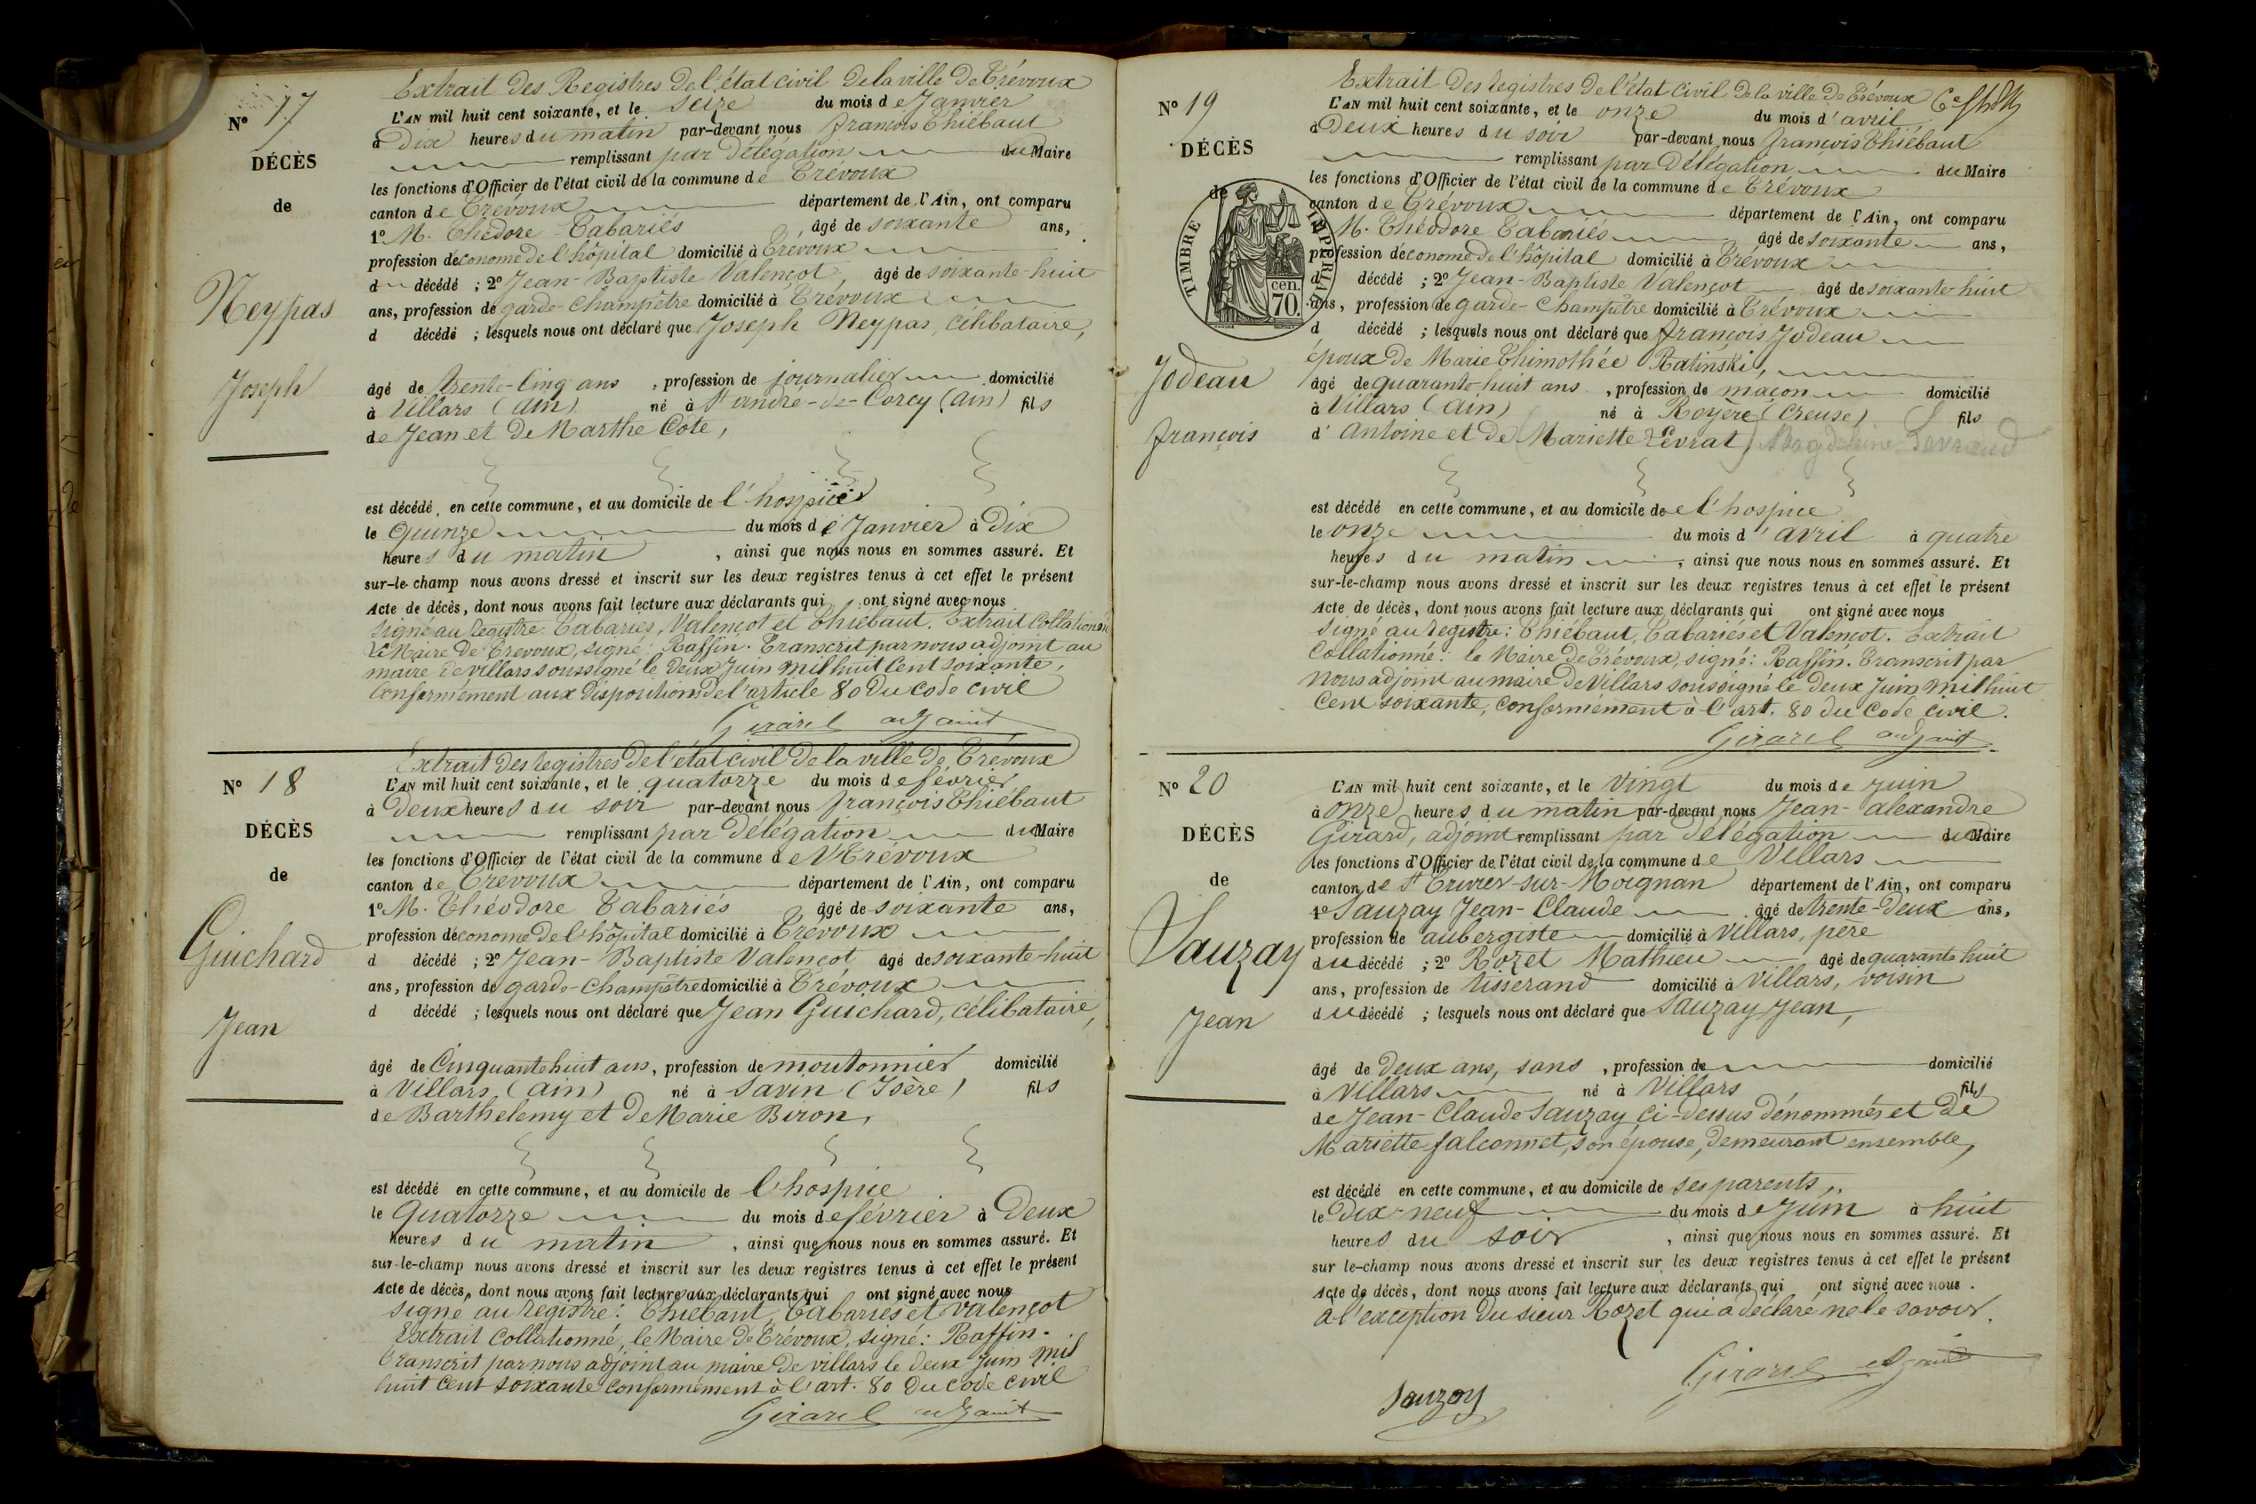 Nº 17
DÉCÈS
de
Neypas
Joseph
Extrait des Registres de l'état civil de la ville de Trévoux
L'AN mil huit cent soixante, et le seize du mois de Janvier
à Dix heures du matin par-devant nous françois Thiébaut
remplissant par délégation du Maire
les fonctions d'Officier de l'état civil de la commune de Trévoux
canton de Trévoux département de l'Ain, ont comparu
1º M. Thédore Tabariés âgé de soixante ans,
profession d'économe de l'hôpital domicilié à Trévoux
d décédé ; 2º Jean-Baptiste Valençot, âgé de soixante-huit
ans, profession de garde-champêtre domicilié à Trévoux
d décédé ; lesquels nous ont déclaré que Joseph Neypas, célibataire,
âgé de trente-cinq ans, profession de journalier domicilié
à Villars (Ain) né à St andré-de-Corcy (Ain) fils
de Jean et de Marthe Cote,
est décédé en cette commune, et au domicile de l'hospice
le quinze du mois de Janvier à Dix
heures du matin, ainsi que nous nous en sommes assuré. Et
sur-le-champ nous avons dressé et inscrit sur les deux registres tenus à cet effet le présent
Acte de décès, dont nous avons fait lecture aux déclarants qui ont signé avec nous
signé au registre: Tabariés, Valençot et Thiébaut. Extrait Collationné
Le Maire de Trévoux, signé: Raffin. Transcrit par nous adjoint au
maire de villars soussigné le deux Juin mil huit cent soixante,
conformément aux dispositions de l'article 80 du code civil
Girard adjoint
Nº 18
DÉCÈS
de
Guichard
Jean
Extrait des registres de l'état civil de la ville de Trévoux
L'AN mil huit cent soixante, et le quatorze du mois de février
à Deux heures du soir par-devant nous françois Thiébaut
remplissant par délégation du Maire
les fonctions d'Officier de l'état civil de la commune de Trévoux
canton de Trévoux département de l'Ain, ont comparu
1º M. Théodore Tabariés âgé de soixante ans,
profession d'économe de l'hôpital domicilié à Trévoux
d décédé ; 2º Jean-Baptiste Valençot âgé de soixante-huit
ans, profession de garde-champêtre domicilié à Trévoux
d décédé ; lesquels nous ont déclaré que Jean Guichard, célibataire,
âgé de Cinquante huit ans, profession de moutonnier domicilié
à Villars (Ain) né à Savin (Isère) fils
de Barthelemy et de Marie Biron,
est décédé en cette commune, et au domicile de l'hospice
le Quatorze du mois de février à Deux
heures du matin, ainsi que nous nous en sommes assuré. Et
sur-le-champ nous avons dressé et inscrit sur les deux registres tenus à cet effet le présent
Acte de décès, dont nous avons fait lecture aux déclarants qui ont signé avec nous
signé au registre: Thiébaut, Tabariés et Valençot
Extrait Collationné, le Maire de Trévoux, signé: Raffin.
Transcrit par nous adjoint au maire de villars le deux Juin mil
huit cent soixante conformément à l'art. 80 du code civil
Girard adjoint
Nº 19
DÉCÈS
de
TIMBRE IMPERIAL
70. cen.
Jodeau
françois
Extrait des registres de l'état civil de la ville de Trévoux
L'AN mil huit cent soixante, et le onze du mois d'avril
à Deux heures du soir par-devant nous françois Thiébaut
remplissant par délégation du Maire
les fonctions d'Officier de l'état civil de la commune de Trévoux
canton de Trévoux département de l'Ain, ont comparu
M. Théodore Tabariés âgé de soixante ans,
profession d'économe de l'hôpital domicilié à Trévoux
d décédé ; 2º Jean-Baptiste Valençot âgé de soixante-huit
ans, profession de garde-champêtre domicilié à Trévoux
d décédé ; lesquels nous ont déclaré que françois Jodeau
époux de Marie Thimothée Ratinski,
âgé de quarante-huit ans, profession de maçon domicilié
à Villars (Ain) né à Royère (Creuse) fils
d'Antoine et de (Mariette Lévrat)
est décédé en cette commune, et au domicile de l'hospice
le onze du mois d'avril à quatre
heures du matin, ainsi que nous nous en sommes assuré. Et
sur-le-champ nous avons dressé et inscrit sur les deux registres tenus à cet effet le présent
Acte de décès, dont nous avons fait lecture aux déclarants qui ont signé avec nous
signé au registre: Thiébaut, Tabariés et Valençot. Extrait
Collationné: le Maire de Trévoux, signé: Raffin. Transcrit par
nous adjoint au maire de Villars soussigné le deux Juin mil huit
cent soixante, conformément à l'art. 80 du code civil.
Girard adjoint
Nº 20
DÉCÈS
de
Sauzay
Jean
L'AN mil huit cent soixante, et le vingt du mois de juin
à onze heures du matin par-devant nous Jean-alexandre
Girard, adjoint remplissant par délégation du Maire
les fonctions d'Officier de l'état civil de la commune de Villars
canton de St Trivier-sur-Moignan département de l'Ain, ont comparu
1º Sauzay Jean-Claude âgé de trente-deux ans,
profession de aubergiste domicilié à Villars, père
du décédé ; 2º Rozet Mathieu âgé de quarante huit
ans, profession de tisserand domicilié à Villars, voisin
du décédé ; lesquels nous ont déclaré que Sauzay Jean,
âgé de deux ans, sans, profession de domicilié
à Villars né à Villars fils
de Jean-Claude Sauzay ci-dessus dénommé, et de
Mariette falconnet, son épouse, demeurant ensemble,
est décédé en cette commune, et au domicile de ses parents,
le Dix-neuf du mois de Juin à huit
heures du soir, ainsi que nous nous en sommes assuré. Et
sur le-champ nous avons dressé et inscrit sur les deux registres tenus à cet effet le présent
Acte de décès, dont nous avons fait lecture aux déclarants qui ont signé avec nous.
à l'exception du sieur Rozet qui a déclaré ne le savoir.
Girard adjoint
Sauzay